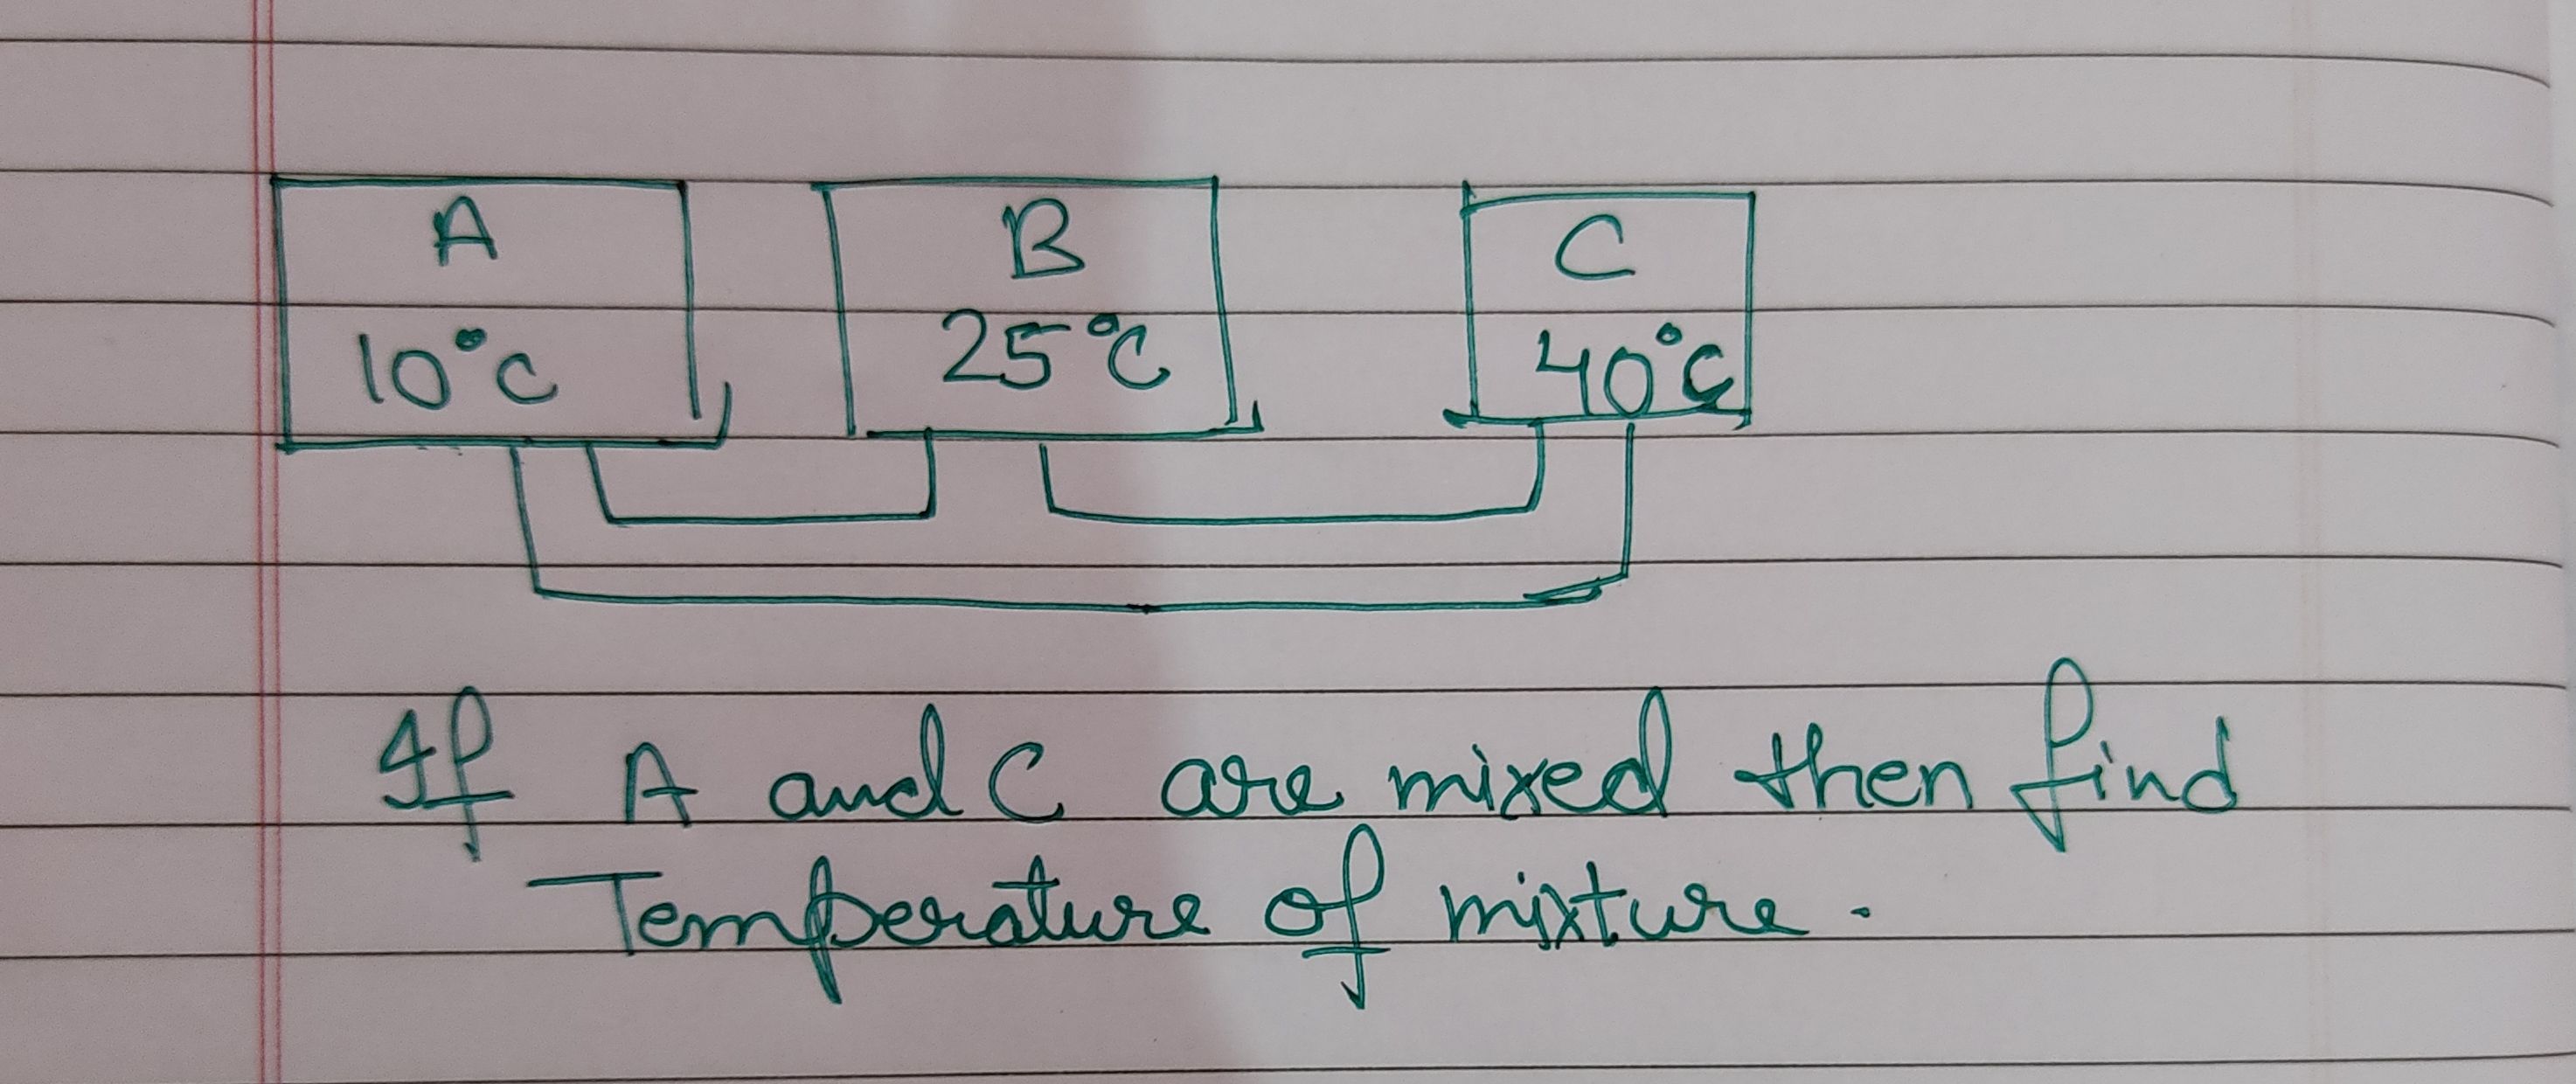 A B C
10°C 25°C 40°C
If A and C are mixed then find
Temperature of mixture.